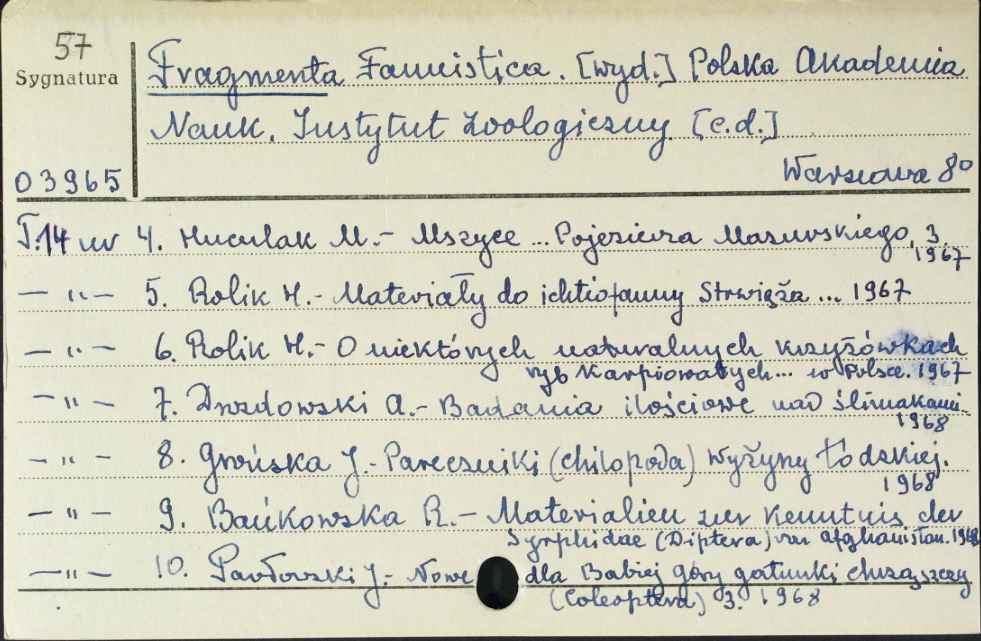 57
Sygnatura
03965
Fragmenta Faunistica. [wyd.] Polska Akademia
Nauk. Instytut Zoologiczny [c.d.]
Warszawa 8°
T.14 nr 4. Huculak M.- Mszyce ... Pojezierza Mazurskiego, 3.
1967
— " — 5. Rolik H.- Materiały do ichtiofauny Strwiąża ... 1967
— " — 6. Rolik H.- O niektórych naturalnych krzyżówkach
ryb karpiowatych... w Polsce. 1967
— " — 7. Drozdowski A.- Badania ilościowe nad ślimakami.
1968
— " — 8. Grońska J.- Pareczniki (Chilopoda) Wyżyny Łódzkiej.
1968
— " — 9. Bańkowska R.- Materialien zur Kenntnis der
Syrphidae (Diptera) von Afghanistan. 1968
— " — 10. Pawłowski J.- Nowe dla Babiej Góry gatunki chrząszczy
(Coleoptera) 3. 1968